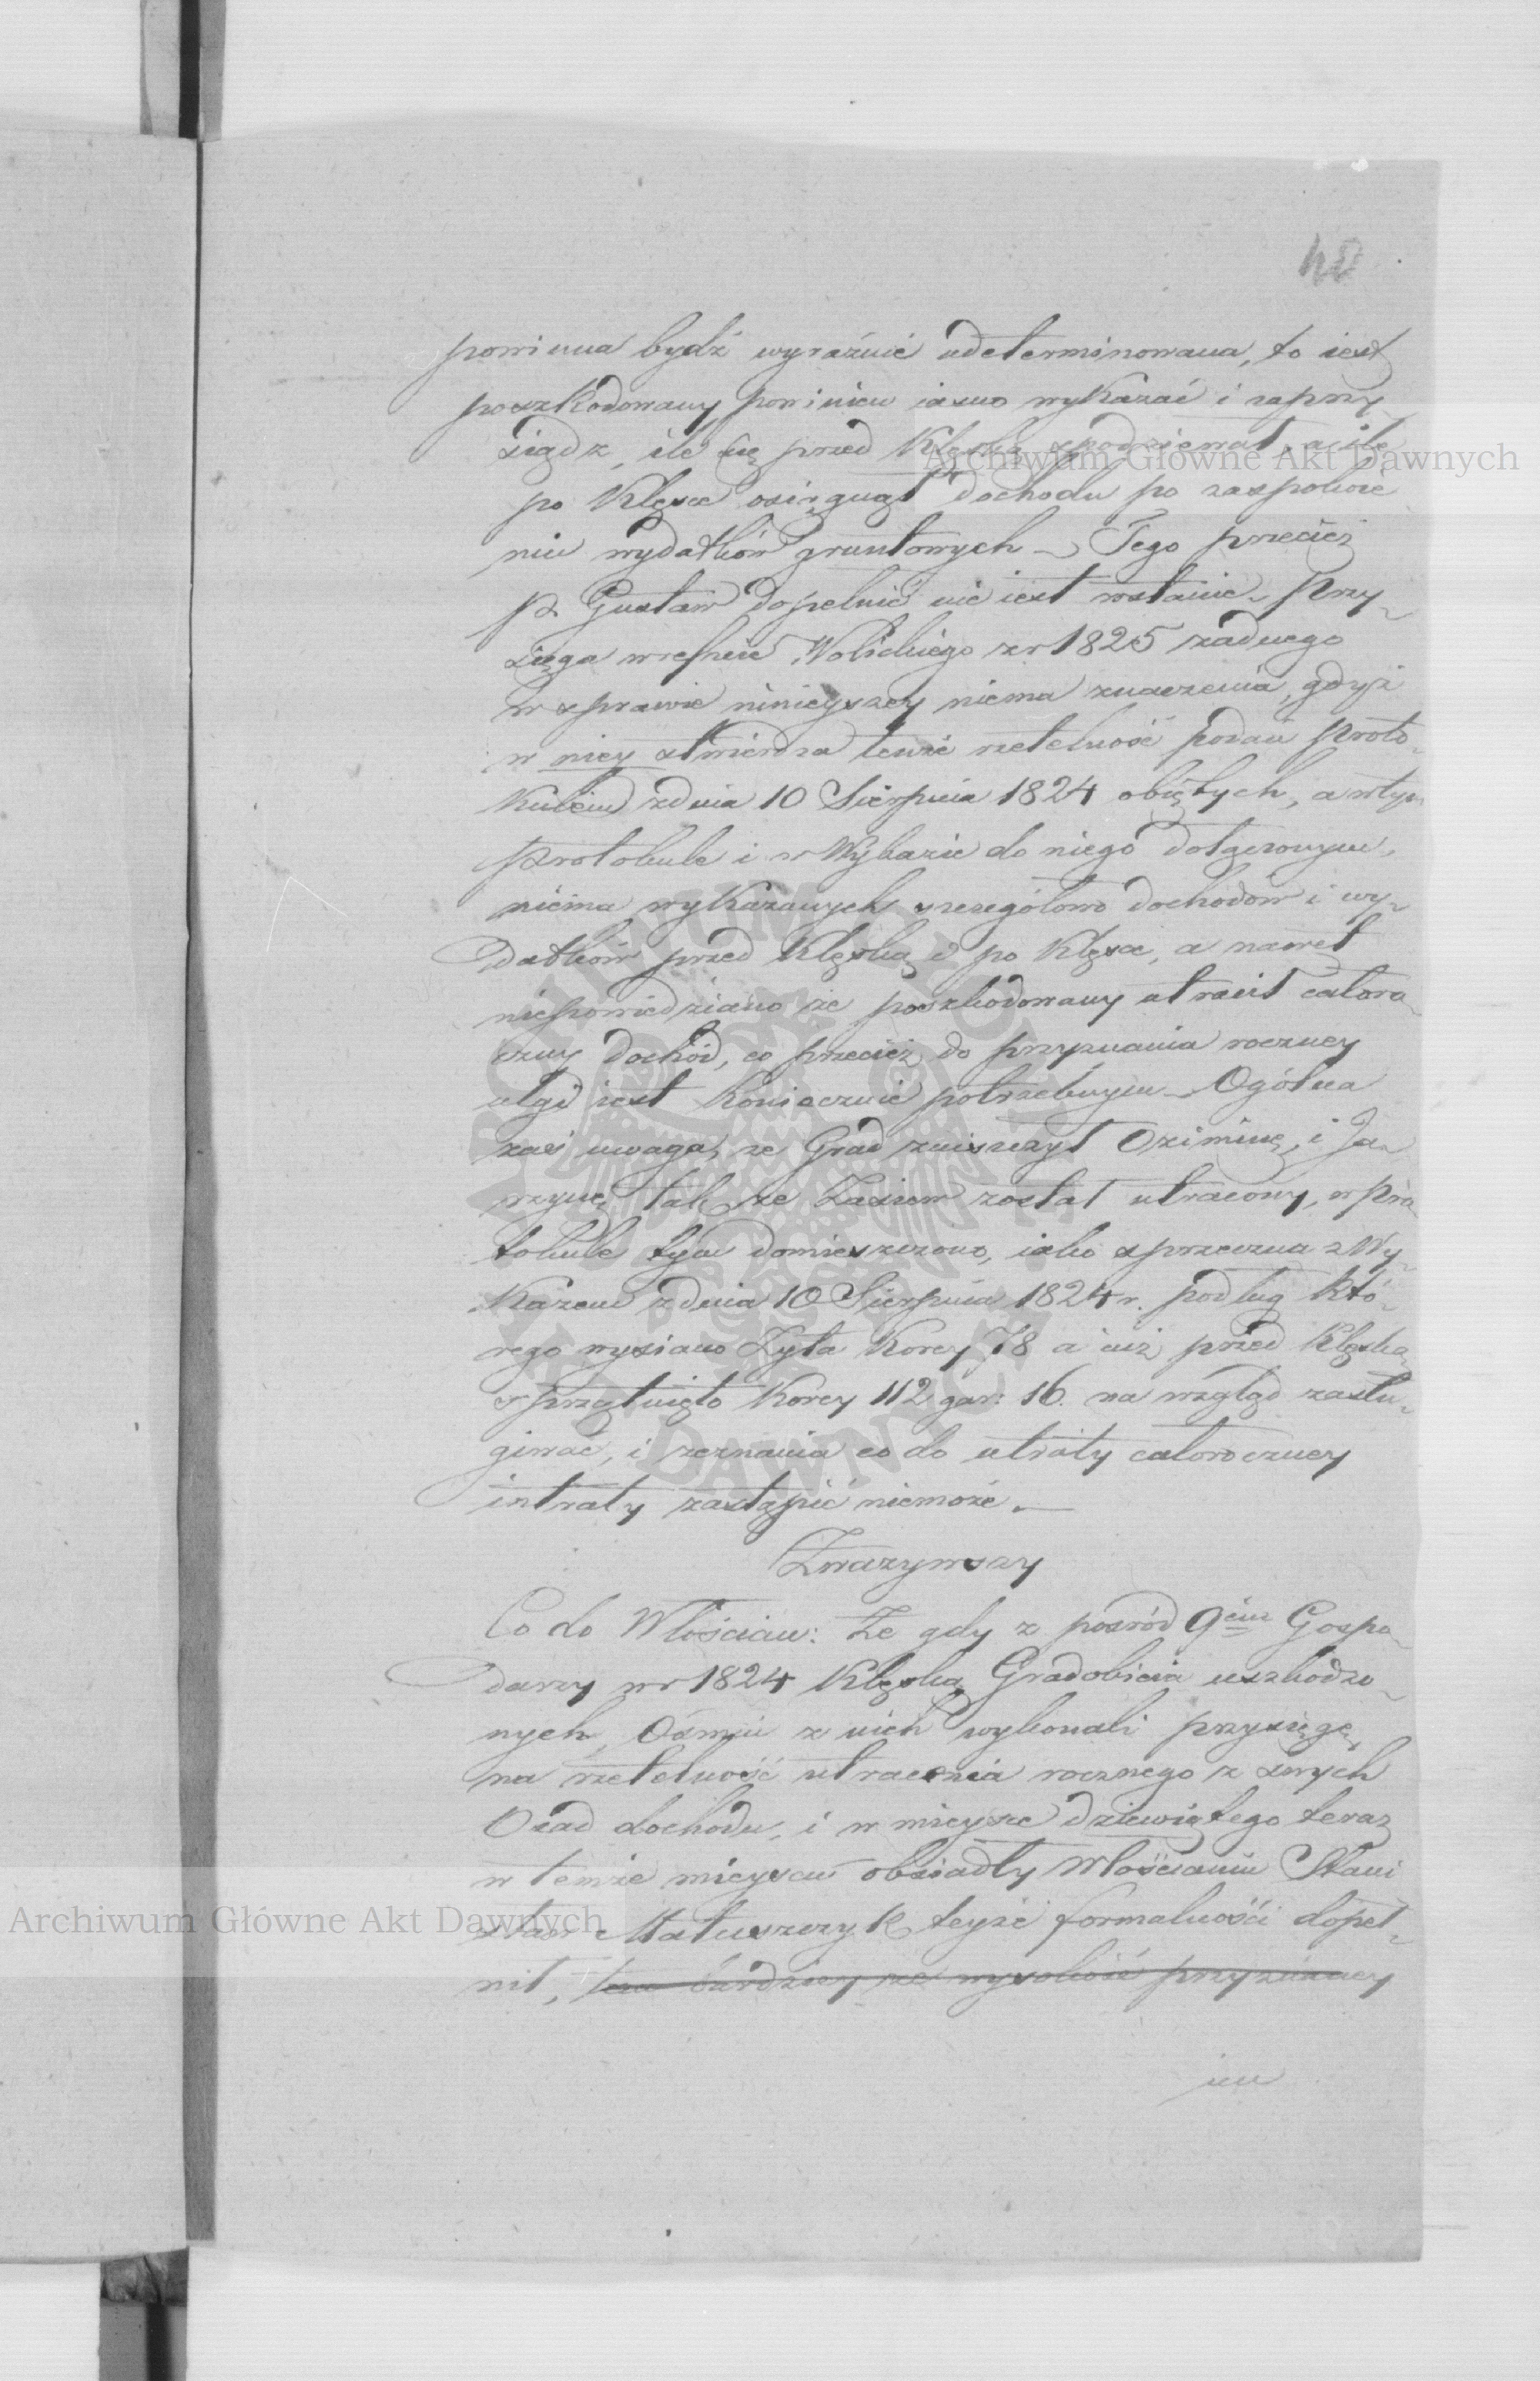 40
powinna bydź wyraźnie udeterminowana, to iest
poszkodowany powinien iasno wykazać i zaprzy-
siądz, ile się przed Klęską spodziewał, a ile
po Klęsce osiągnął dochodu po zaspokoie
niu wydatków gruntowych – Tego przecież
P. Gustaw dopełnić nie iest wstanie – Przy-
sięga wreszcie Wolickiego z r 1825 żadnego
w sprawie ninieyszey niema znaczenia, gdyż
w niey stwierdza tenże rzetelność podań Proto-
kułem z dnia 10 Sierpnia 1824 obiętych, a w tym
Protokule i w Wykazie do niego dołączonym,
niema wykazanych szczegółowo dochodów i wy-
datków przed Klęską i po Klęsce, a nawet
niepowiedziano że poszkodowany utracił całoro-
czny dochód, co przecież do przyznania roczney
ulgi iest koniecznie potrzebnym – Ogólna
zaś uwaga, że Grad zniszczył Oziminę, i Ja-
rzynę tak że Zasiew został utracony, w Pro-
tokule tym domieszczono, iako sprzeczna z Wy-
kazem z dnia 10 Sierpnia 1824 r. podług któ-
rego wysiano Żyta Korcy 78 a iuż przed Klęską
sprzątnięto Korcy 112 gar: 16. na wzgląd zasłu-
giwać, i zeznania co do utraty całoroczney
intraty zastąpić niemoże. –
Zważywszy
Co do Włościan: Że gdy z pośród 9ciu Gospo-
darzy w r 1824 Klęską Gradobicia uszkodzo-
nych, Ośmiu z nich wykonali przysięgę,
na rzetelność utracenia rocznego z swych
Osad dochodu, i w mieysce dziewiątego teraz
w temże mieyscu obsiadły Włościanin Stani
sław Matuszczyk teyże formalności dopeł-
nił, tem bardziey że wysokość przyznaney
im
Archiwum Główne Akt Dawnych
Archiwum Główne Akt Dawnych